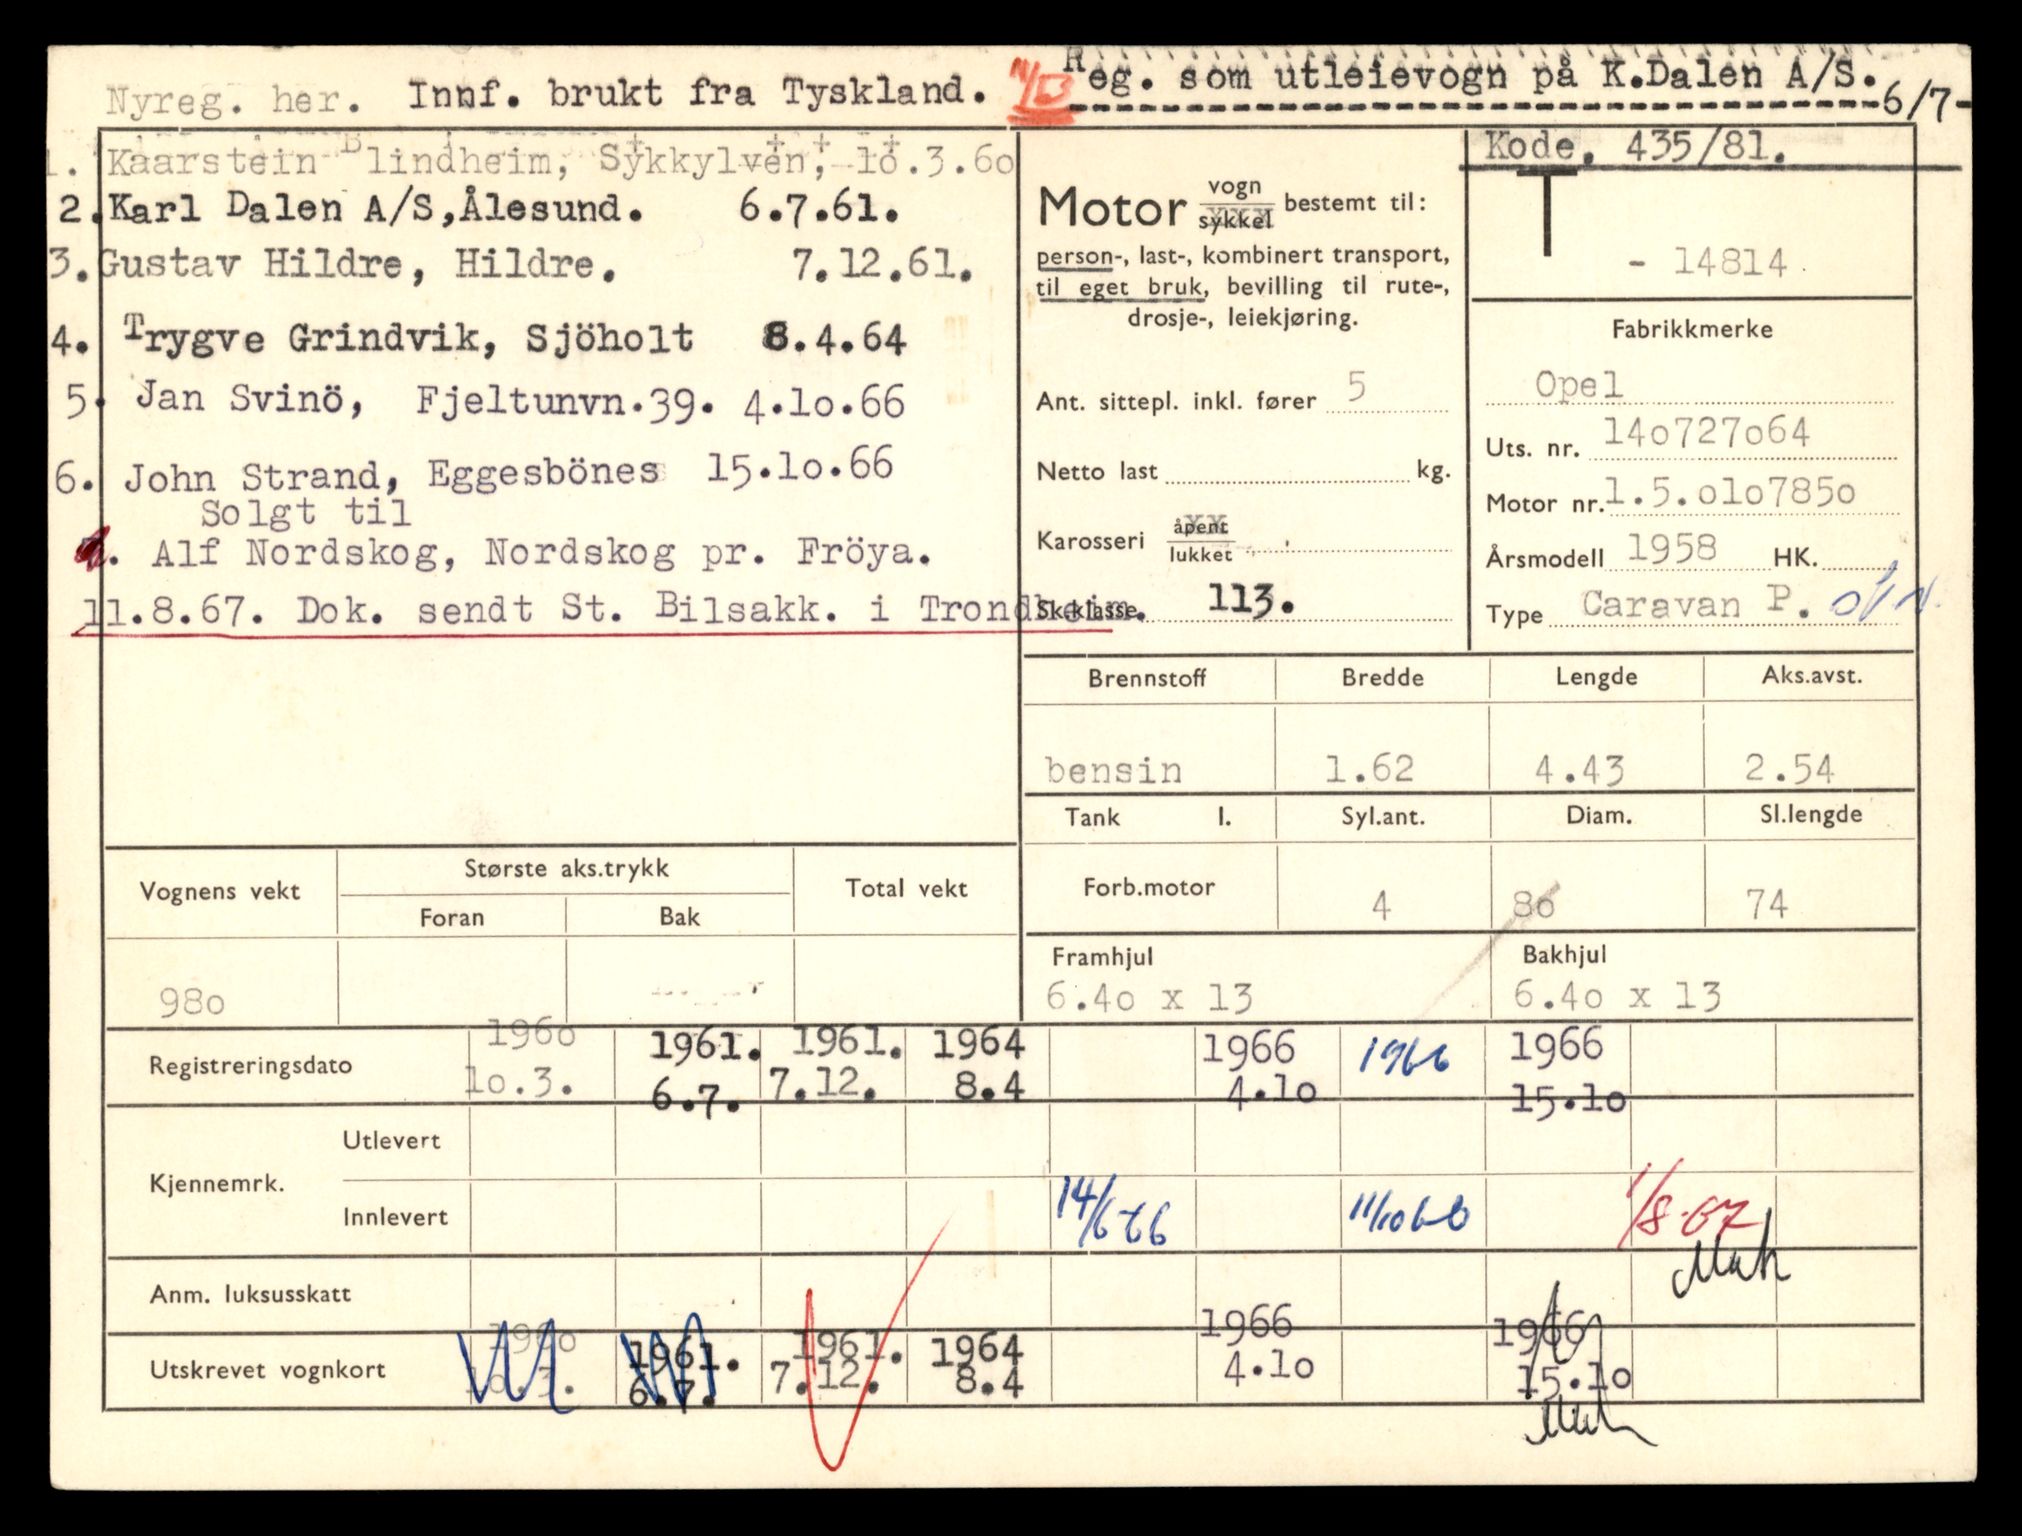 Nyreg. her. Innf. brukt fra Tyskland.
Reg. som utleievogn på K.Dalen A/S.
6/7-
1. Kaarstein Blindheim, Sykkylven, 1o.3.6o
2. Karl Dalen A/S, Ålesund. 6.7.61.
3. Gustav Hildre, Hildre. 7.12.61.
4. Trygve Grindvik, Sjöholt 8.4.64
5. Jan Svinö, Fjeltunvn.39. 4.1o.66
6. John Strand, Eggesbönes 15.1o.66
Solgt til
Alf Nordskog, Nordskog pr. Fröya.
11.8.67. Dok. sendt St. Bilsakk. i Trondheim.
Motor vogn sykkel bestemt til:
person-, last-, kombinert transport,
til eget bruk, bevilling til rute-,
drosje-, leiekjøring.
Ant. sittepl. inkl. fører 5
Netto last kg.
Karosseri åpent lukket
Sk.klasse 113.
Kode. 435/81.
T - 14814
Fabrikkmerke
Opel
Uts. nr. 14o727o64
Motor nr. 1.5.o1o785o
Årsmodell 1958 HK.
Type Caravan P.
Brennstoff Bredde Lengde Aks.avst.
bensin 1.62 4.43 2.54
Tank l. Syl.ant. Diam. Sl.lengde
Forb.motor 4 8o 74
Framhjul Bakhjul
6.4o x 13 6.4o x 13
Vognens vekt Største aks.trykk Total vekt
Foran Bak
98o
196o 1961. 1961. 1964 1966 1966 1966
Registreringsdato 1o.3. 6.7. 7.12. 8.4 4.1o 15.1o
Kjennemrk.
Utlevert
Innlevert 14/6-66 11/10 66 1/8-67
Anm. luksusskatt
196o 1961. 1961. 1964 1966 1966
Utskrevet vognkort 1o.3. 6.7. 7.12. 8.4 4.1o 15.1o